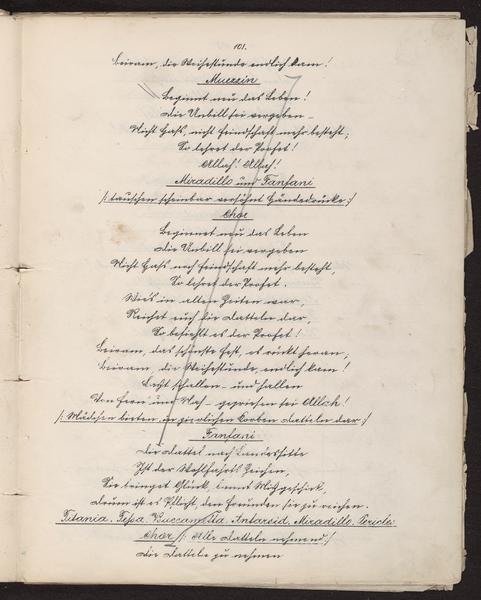 101.
Beiram, die Weihestunde endlich kam!
Muezzin
Beginnt neu das Leben!
Die Unbill sei vergeben –
Nicht Haß, nicht Feindschaft mehr besteht;
So lehret der Profet!
Allah! Allah!
Miradillo und Fanfani
/: tauschen scheinbar versöhnt Händedrücke :/
Chor
Beginnet neu das Leben
Die Unbill sei vergeben
Nicht Haß noch Feindschaft mehr besteht,
So lehret der Profet.
Wie's in alten Zeiten war,
Reichet euch die Datteln dar,
So befiehlt es der Profet!
Beiram, das schönste Fest, es rückt heran,
Beiram, die Weihestunde, endlich kam!
Laßt schallen – und hallen
Von fern und Nah – gepriesen sei Allah!
/: Mädchen bieten in zierlichen Körben Datteln dar :/
Fanfani
Die Dattel nach Landessitte
Ist der Wohlfahrt Zeichen,
Sie bringet Glück, bannt Mißgeschick,
Drum ist es Pflicht, den Freunden sie zu reichen.
Titania, Tessa, Buccametta, Antarsid, Miradillo, Pericles
Chor /: Alle Datteln nehmend :/
Die Datteln zu nehmen